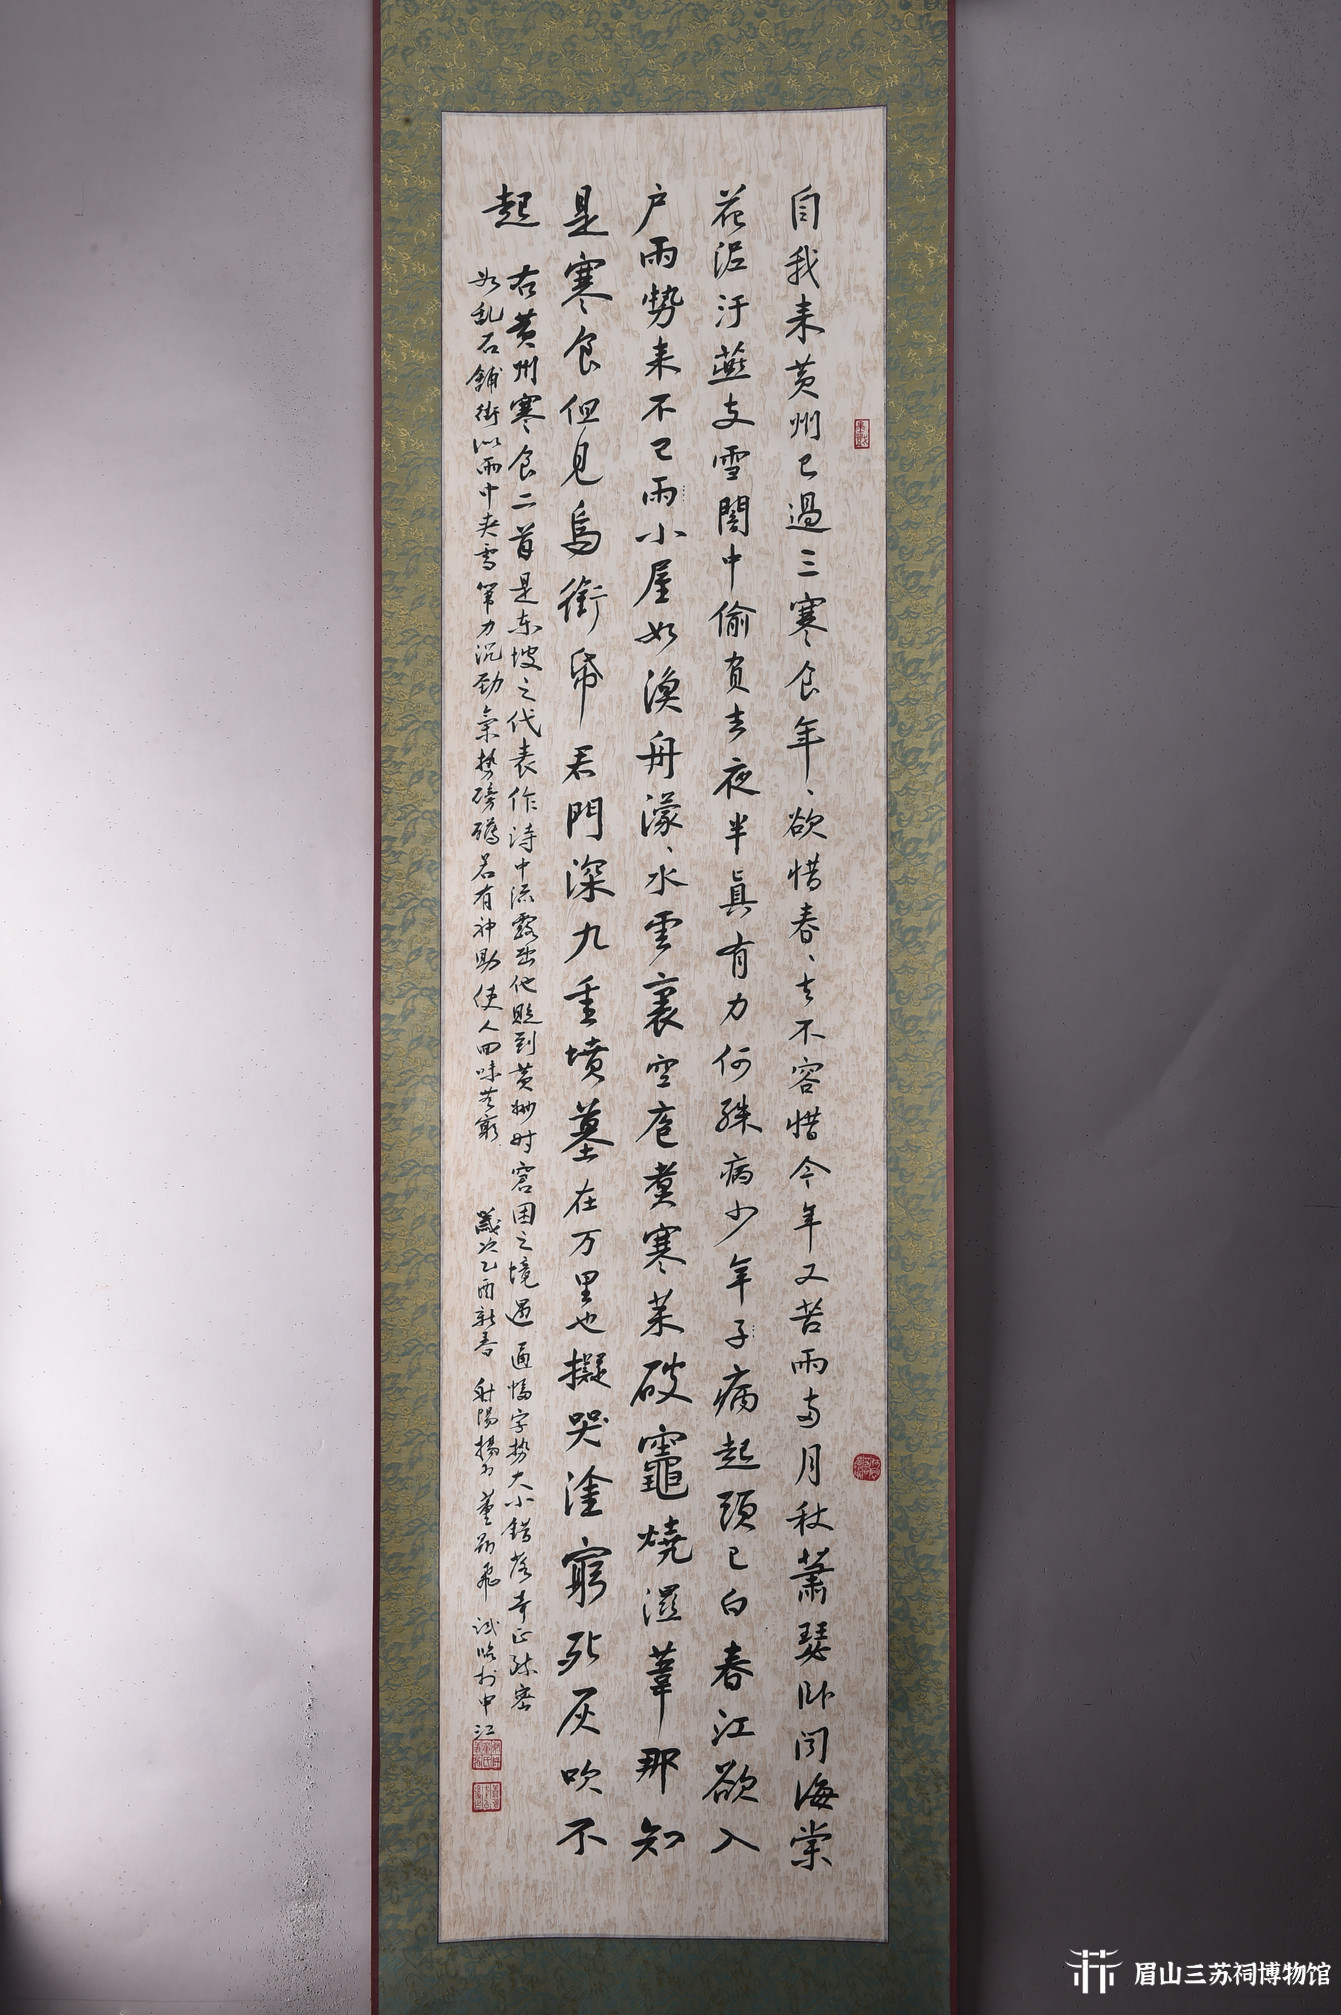 自我来黄州已過三寒食年、欲惜春、去不容惜今年又苦雨两月秋蕭瑟卧闻海棠
花泥汙燕支雪闇中偷負去夜半真有力何殊病少年子病起頭已白春江欲入
户雨势来不已雨小屋如渔舟濛、水雲裏空庖煮寒菜破竈燒溼葦那知
是寒食但见烏銜帋君門深九重墳墓在万里也擬哭塗窮死灰吹不
起
右黄州寒食二首是东坡之代表作诗中流露出他贬到黄州时窘困之境遇通幅字势大小错落奇正疏密
如乱石铺街似雨中夹雪笔力沉劲氣势磅礴若有神助使人回味无穷 歲次乙酉新春 射陽 试临於中江
眉山三苏祠博物馆